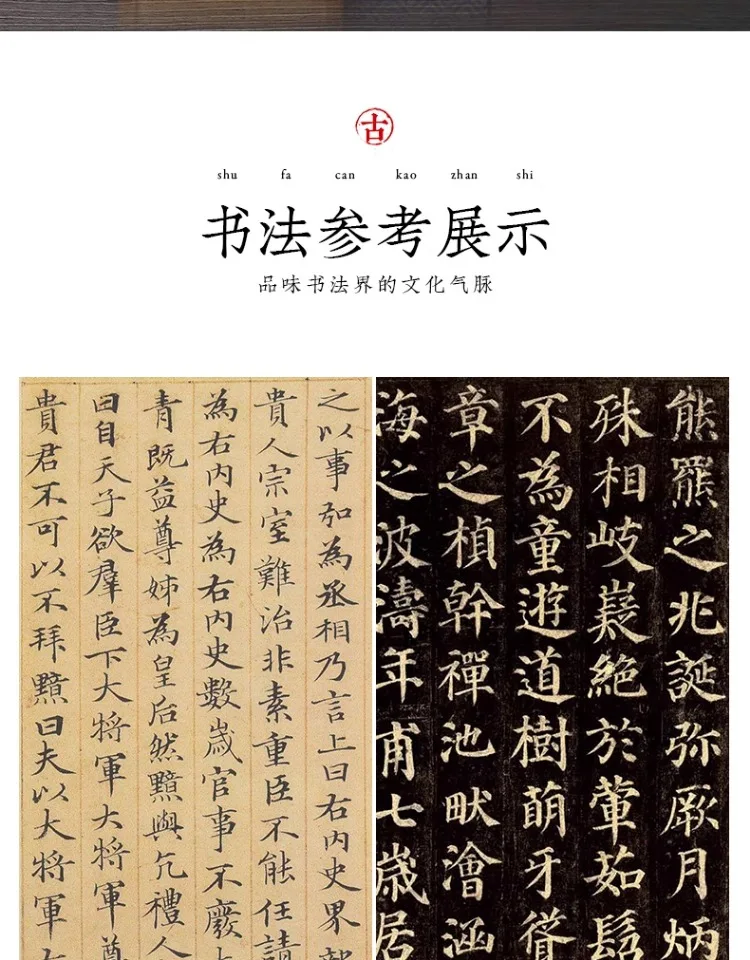 古
shu fa can kao zhan shi
书法参考展示
品味书法界的文化气脉
之以事弘為丞相乃言上曰右内史界
貴人宗室難治非素重臣不能任請
為右内史為右内史數歲官事不廢
青既益尊姊為皇后然黯與亢禮人
曰自天子欲羣臣下大將軍大將軍尊
貴君不可以不拜黯曰夫以大將軍
熊羆之兆誕弥厥月炳
殊相岐嶷絶於葷茹髫
不為童遊道樹萌牙聳
章之楨幹禪池畎澮涵
海之波濤年甫七歲居